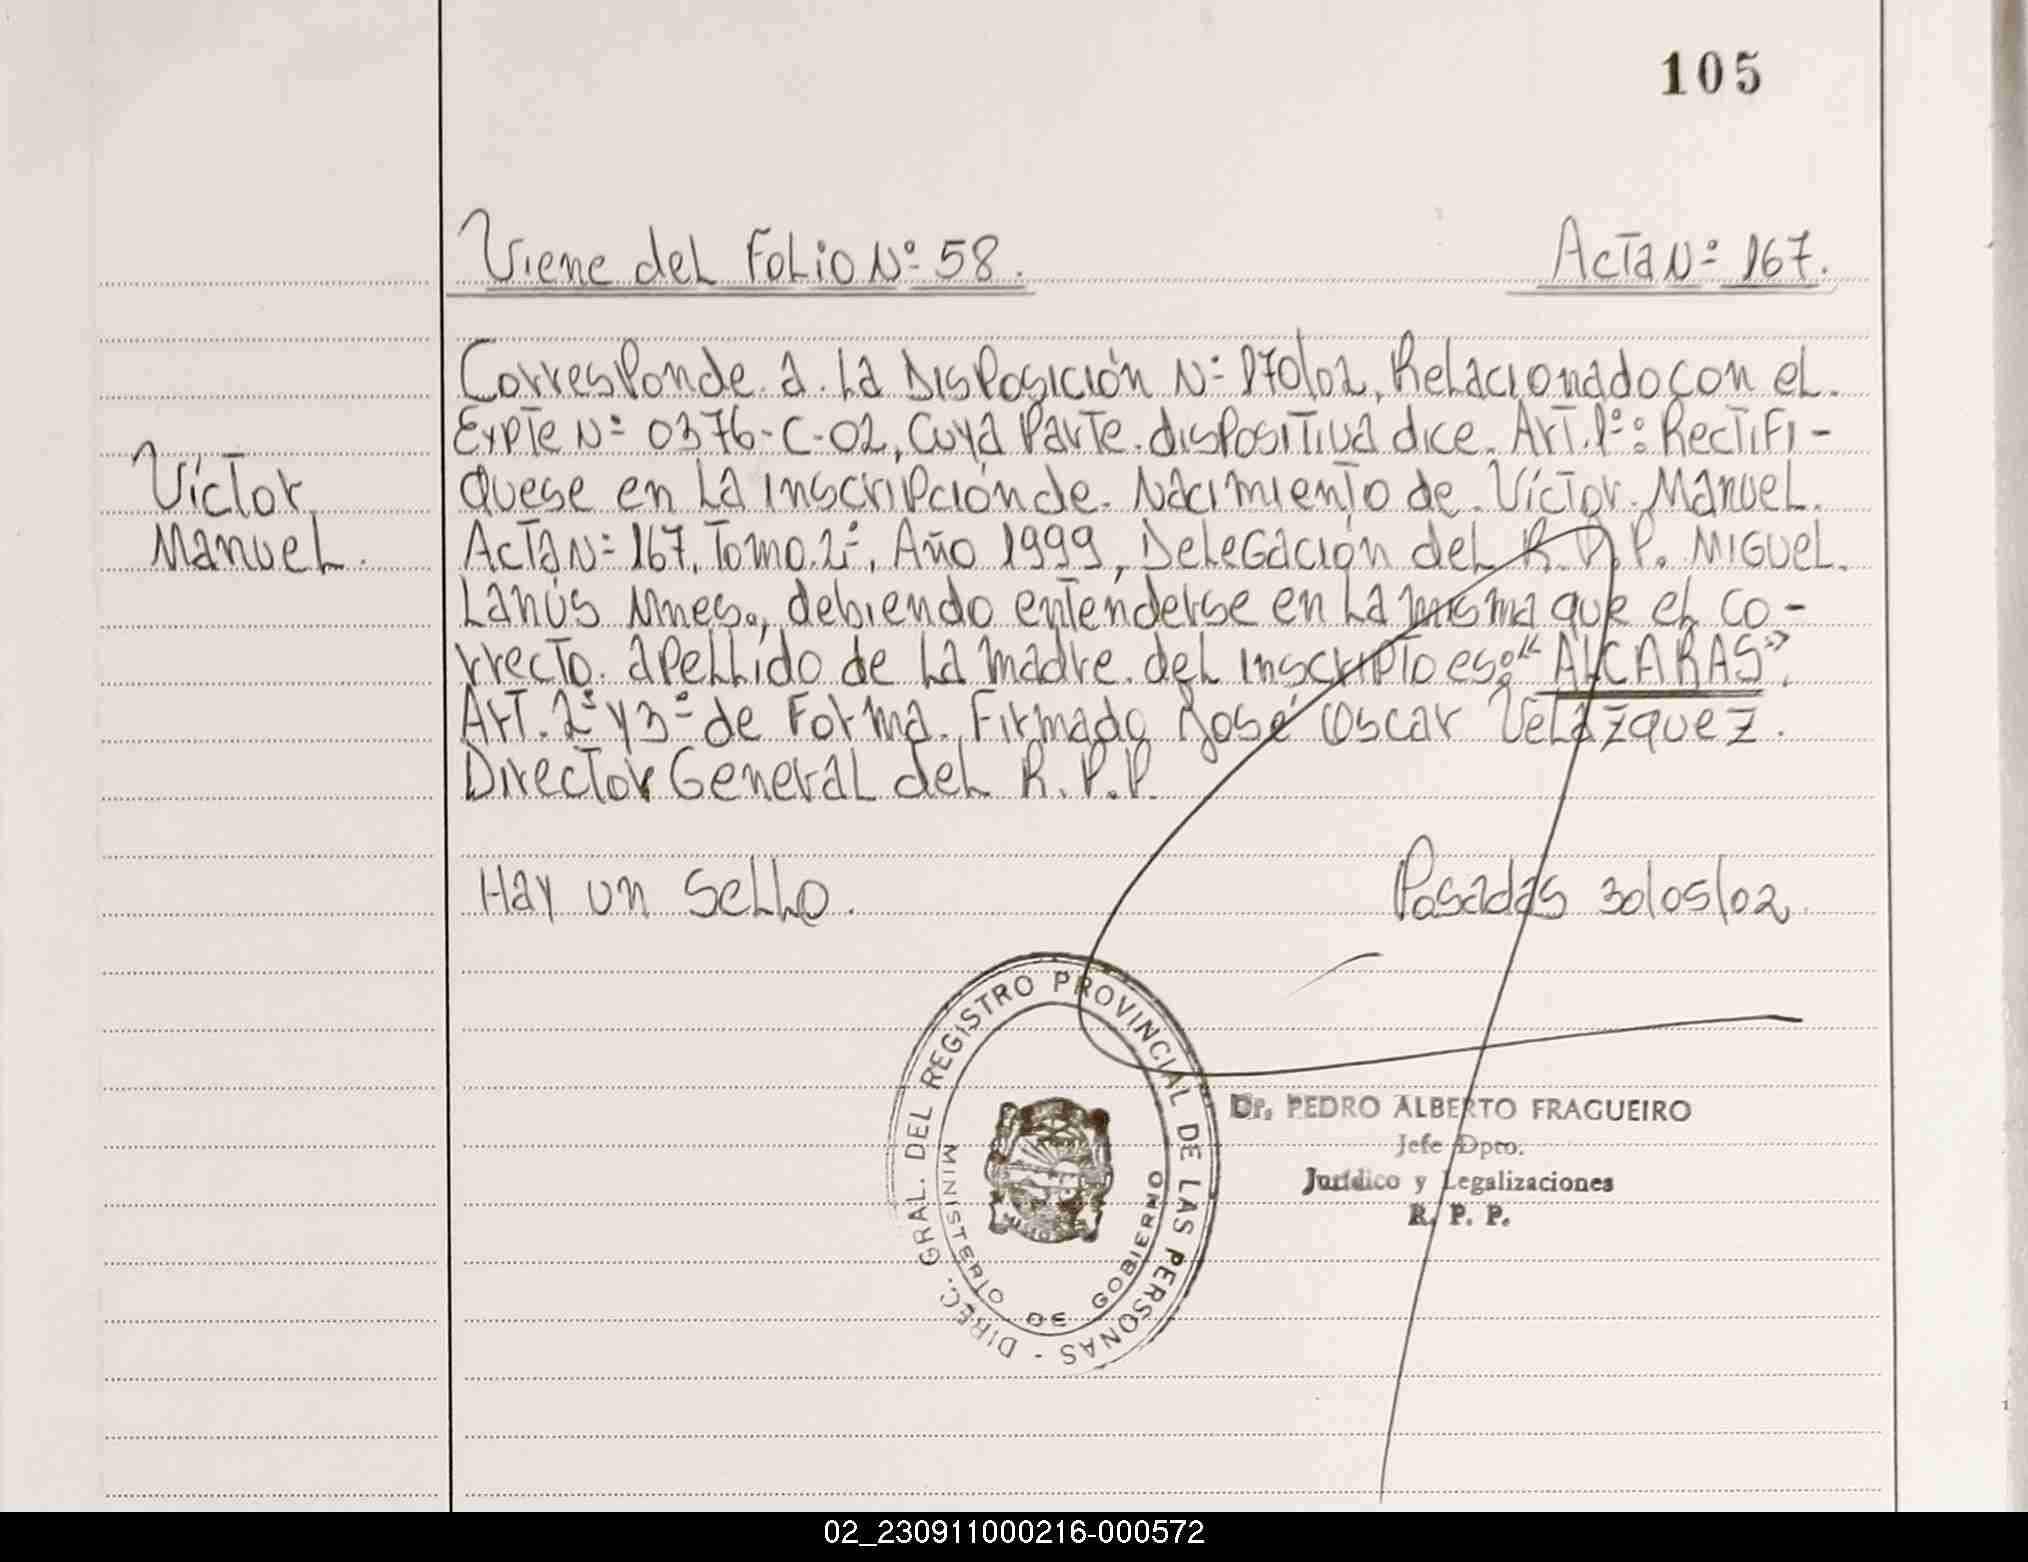 105
Viene del Folio Nº 58.
Acta Nº 167.
Corresponde a la Disposición Nº 170/02, Relacionado con el
Expte Nº 0376-C-02, Cuya Parte dispositiva dice. Art. 1º: Rectifi-
Víctor
Manuel.
quese en la inscripción de Nacimiento de Víctor Manuel.
Acta Nº 167, Tomo 2º, Año 1999, Delegación del R.P.P. Miguel
Lanús Mnes., debiendo entenderse en la misma que el co-
rrecto apellido de la madre del inscripto es: "ALCARAS".
Art. 2º y 3º de Forma. Firmado José Oscar Velázquez.
Director General del R.P.P.
Hay un Sello.
Posadas 30/05/02.
DIREC. GRAL. DEL REGISTRO PROVINCIAL DE LAS PERSONAS -
MINISTERIO DE GOBIERNO
Dr. PEDRO ALBERTO FRAGUEIRO
Jefe Dpto.
Jurídico y Legalizaciones
R. P. P.
02_230911000216-000572